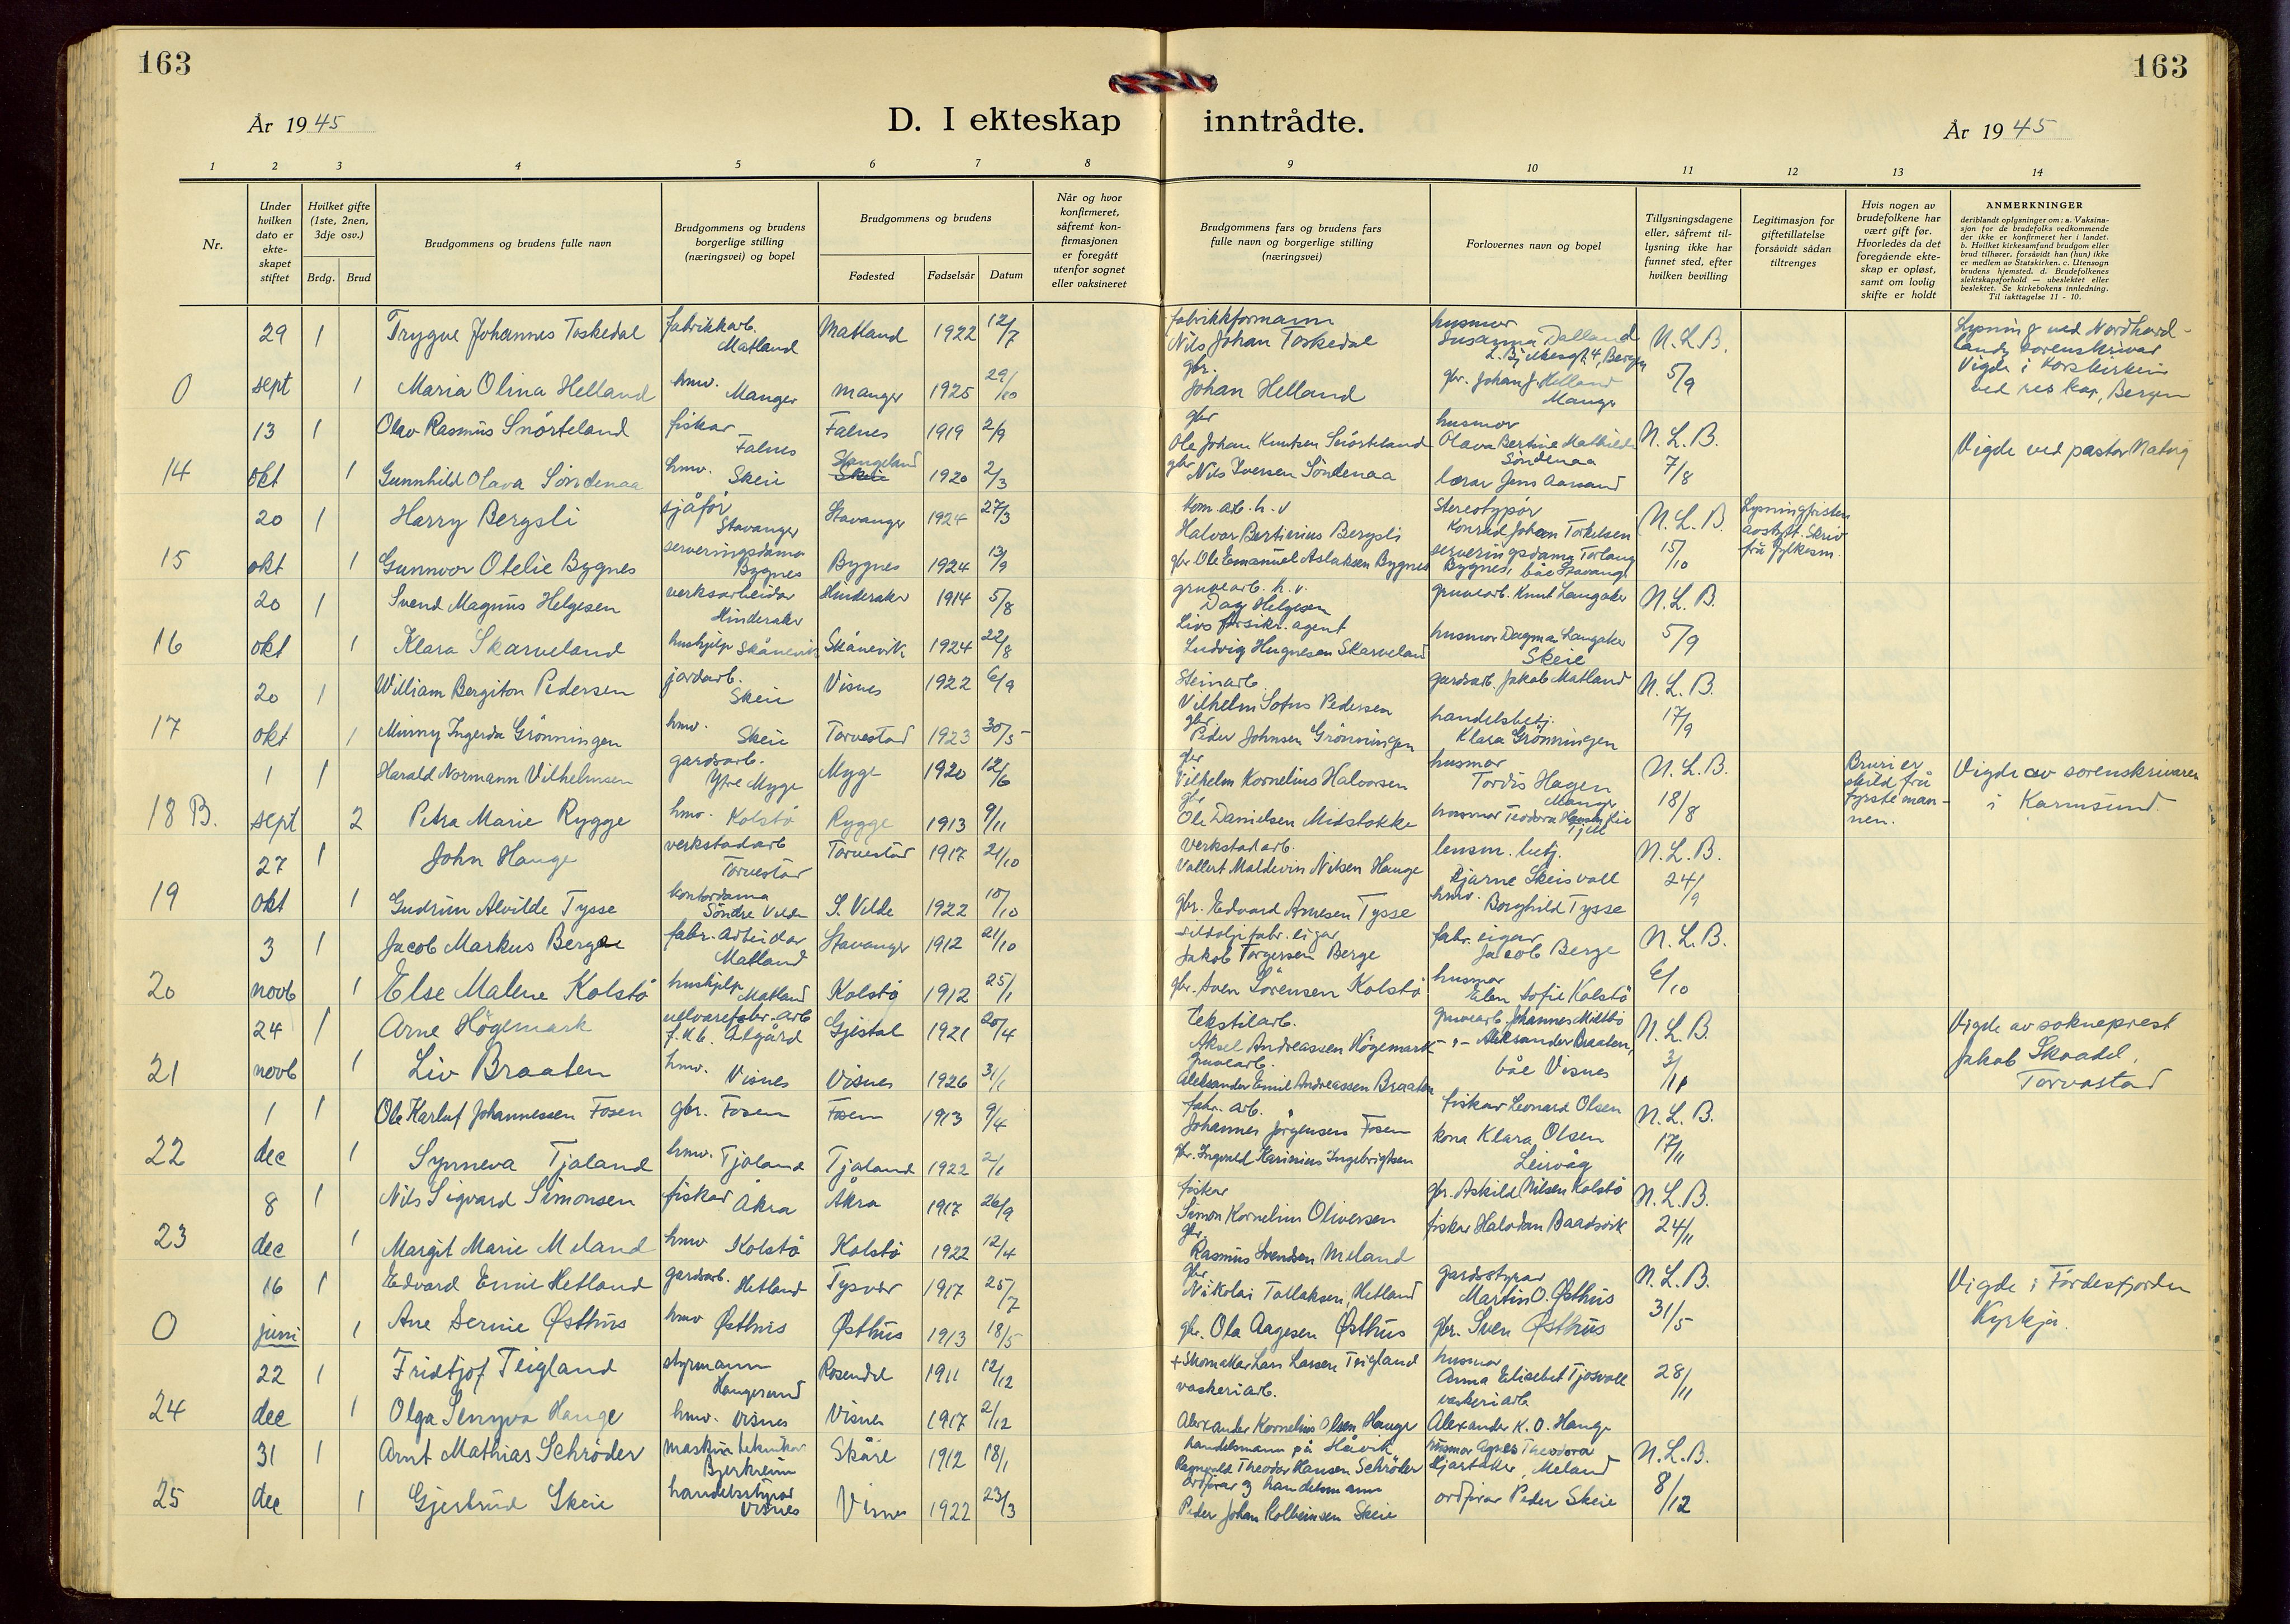 163
163
År 1945
D. I ekteskap inntrådte.
År 1945
1 2 3 4 5 6 7 8 9 10 11 12 13 14
Nr.
Under hvilken dato er ekte-skapet stiftet
Hvilket gifte (1ste, 2nen, 3dje osv.)
Brdg.
Brud
Brudgommens og brudens fulle navn
Brudgommens og brudens borgerlige stilling (næringsvei) og bopel
Brudgommens og brudens
Fødested
Fødselsår
Datum
Når og hvor konfirmeret, såfremt kon-firmasjonen er foregått utenfor sognet eller vaksineret
Brudgommens fars og brudens fars fulle navn og borgerlige stilling (næringsvei)
Forlovernes navn og bopel
Tillysningsdagene eller, såfremt til-lysning ikke har funnet sted, efter hvilken bevilling
Legitimasjon for giftetillatelse forsåvidt sådan tiltrenges
Hvis nogen av brudefolkene har vært gift før. Hvorledes da det foregående ekte-skap er opløst, samt om lovlig skifte er holdt
ANMERKNINGER
deriblandt oplysninger om: a. Vaksina-sjon for de brudefolks vedkommende der ikke er konfirmeret her i landet. b. Hvilket kirkesamfund brudgom eller brud tilhører, forsåvidt han (hun) ikke er medlem av Statskirken. c. Utensogn brudens hjemsted. d. Brudefolkenes slektskapsforhold — ubeslektet eller beslektet. Se kirkebokens innledning. Til iakttagelse 11 - 10.
29 1 Trygve Johannes Toskedal fabrikkarb. Matland Matland 1922 12/7 fabrikkformann Nils Johan Toskedal husmor Susanna Dalland N.L.B. Lysning ved Nordhord-lands sorenskrivar
0 sept 1 Maria Olina Helland hmv. Manger Manger 1925 29/10 gbr. Johan Helland gbr. Johan J. Helland Manger 5/9 Vigde i Korskirken ved res. kap., Bergen
13 1 Olav Rasmus Snörteland fiskar Falnes Falnes 1919 2/9 gbr Ole Johan Knutsen Snörteland husmor Olava Bertine Mathilde Söndenaa N.L.B. Vigde ved pastor
14 okt 1 Gunnhild Olava Söndenaa hmv. Skeie Stangeland Skeie 1920 2/3 gbr Nils Iversen Söndenaa lærar Jens Aarsand 7/8
20 1 Harry Bergsli sjåfør Stavanger Stavanger 1924 27/3 kom. arb. h.v. Halvor Bertinius Bergsli Stereotypør Konrad Johan Torkelsen N.L.B. Lysningfristen avstytt. Skriv frå fylkesm.
15 okt 1 Gunnvor Otelie Bygnes serveringsdama Bygnes Bygnes 1924 13/9 gbr. Ole Emanuel Aslaksen Bygnes serveringsdama Torlaug Bygnes, båe Stavanger 15/10
20 1 Svend Magnus Helgesen verksarbeidar Hinderaker Hinderaker 1914 5/8 gruvearb. h.v. Dag Helgesen gruvearb. Knut Langaker N.L.B.
16 okt 1 Klara Skarveland hushjelp Skånevik Skånevik 1924 22/8 Livsforsikr. agent Ludvig Hugnesen Skarveland husmor Dagmar Langaker Skeie 5/9
20 1 William Bergiton Pedersen jordarb. Skeie Visnes 1922 6/9 Steinarb. Vilhelm Sofus Pedersen gardsarb. Jakob Matland N.L.B.
17 okt 1 Minny Ingerda Grönningen hmv. Skeie Torvestad 1923 30/5 gbr Peder Johnsen Grönningen handelsbetj. Klara Grönningen 17/9
1 1 Harald Normann Vilhelmsen gardsarb. Ytre Myge Myge 1920 12/6 gbr Vilhelm Kornelius Halvorsen husmor Tordis Hagen N.L.B. Bruri er skild frå fyrste man-nen. Vigde av sorenskrivaren i Karmsund.
18 B. sept 2 Petra Marie Rygge hmv. Kolstö Rygge 1913 9/11 gbr Ole Danielsen Midstokke husmor Teodora 18/8
27 1 John Hauge verkstadarb Torvestad Torvestad 1917 21/10 verkstadarb. Vallert Maldevin Nilsen Hauge lensm. betj. Bjarne Skeisvoll N.L.B.
19 okt 1 Gudrun Alvilde Tysse kontordama Söndre Velde S. Velde 1922 10/10 gbr. Edvard Arnesen Tysse hmv. Borghild Tysse 24/9
3 1 Jacob Markus Berge fabr. arbeidar Matland Stavanger 1912 21/10 sildolje fabr. eigar Jakob Torgersen Berge fabr. eigar Jacob Berge N.L.B.
20 novb 1 Else Malene Kolstö hushjelp Matland Kolstö 1912 25/1 gbr. Sven Sörensen Kolstö husmor Elen Sofie Kolstö 6/10
24 1 Arne Högemark ullvarefabr. arb f.k.b. Ålgård Gjestal 1921 20/4 Tekstilarb. Aksel Andreassen Högemark gruvearb. Johannes Miltbö N.L.B. Vigde av sokneprest Jakob Skaadel, Torvastad
21 novb 1 Liv Braaten hmv. Visnes Visnes 1926 31/1 gruvearb. Aleksander Emil Andreassen Braaten -"- Aleksander Braaten, båe Visnes 3/11
1 1 Ole Karluf Johannessen Fosen gbr. Fosen Fosen 1913 9/4 fabr. arb. Johannes Jørgensen Fosen fiskar Leonard Olsen N.L.B.
22 dec 1 Synneva Tjøland hmv. Tjøland Tjøland 1922 2/1 gbr. Ingvald Karinius Ingebrigtsen kona Klara Olsen Leirvåg 17/11
8 1 Nils Sigvard Simonsen fiskar Åkra Åkra 1917 26/9 fiskar Simon Kornelius Oliversen gbr. Askild Nilsen Kolstö N.L.B.
23 dec 1 Margit Marie Meland hmv Kolstö Kolstö 1922 12/4 gbr. Rasmus Svendsen Meland fiskar Halvdan Baadsvik 24/11
16 1 Edvard Emil Hetland gardsarb. Hetland Tysvær 1917 25/7 gbr Nikolai Tollaksen Hetland gardsstyrar Martin O. Østhus N.L.B. Vigde i Fördesfjorden Kyrkja.
0 juni 1 Ane Serine Østhus hmv Østhus Østhus 1913 18/5 gbr. Ola Aagesen Østhus gbr. Sven Østhus 31/5
22 1 Fridtjof Teigland styrmann Haugesund Rosendal 1911 12/12 + Skomakar Lars Larsen Teigland husmor Anna Elisabet Tjosvoll 28/11
24 dec 1 Olga Senyva Hauge hmv. Visnes Visnes 1917 2/12 vaskeriarb. Alexander Kornelius Olsen Hauge vaskeriarb Alexander K. O. Hauge
31 1 Arnt Mathias Schröder maskintekniker Bjerkreim Skåre 1912 18/1 handelsmann på Håvik Ragnvald Theodor Hansen Schröder husmor Agnes Theodora Hjartaker, Meland N.L.B.
25 dec 1 Gjertrud Skeie handelsstyrar Visnes Visnes 1922 23/3 ordførar og handelsmann Peder Johan Kolbeinsen Skeie ordførar Peder Skeie 8/12